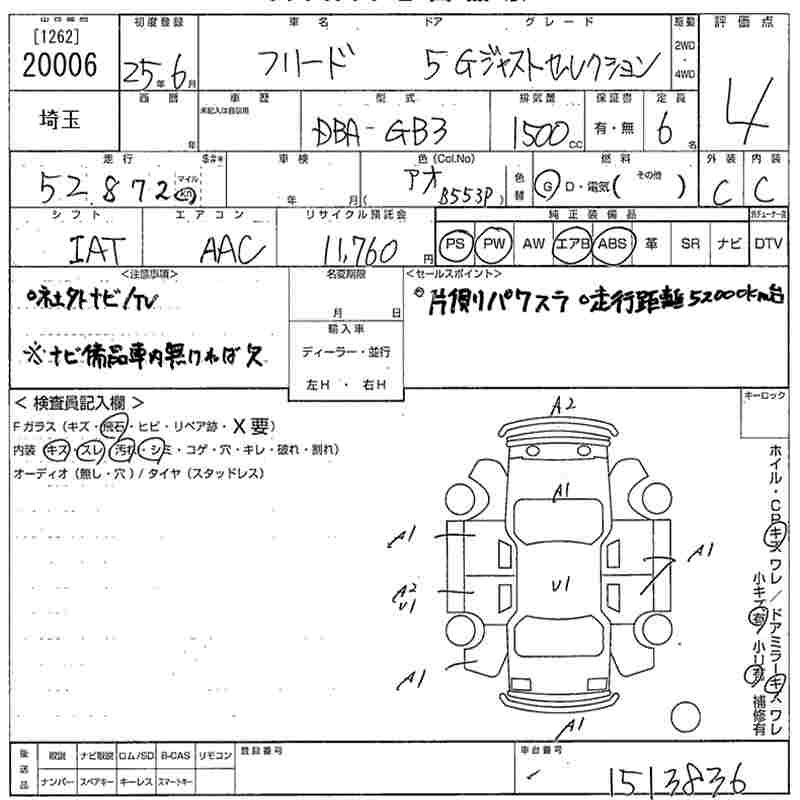 [1262]
20006
埼玉
初度登録
25年6月
車名
フリード
ドア
5
グレード
Gジャストセレクション
駆動
2WD
・
4WD
評価点
4
西暦
年
車歴
未記入は自家用
型式
DBA-GB3
排気量
1500cc
保証書
有・無
定員
6名
走行
$#*
52,872
マイル
km
車検
年 月
色(Col.No)
アオ
( B553P )
色替
燃料
G D・電気( その他 )
外装
C
内装
C
シフト
IAT
エアコン
AAC
リサイクル預託金
11,760円
純正装備品
PS PW AW エアB ABS 革 SR ナビ DTV
<注意事項>
○社外ナビ/TV
※ナビ備品車内無ければ欠
名変期限
月 日
輸入車
ディーラー・並行
左H・右H
<セールスポイント>
○片側パワスラ ○走行距離52000km台
<検査員記入欄>
Fガラス(キズ・飛石・ヒビ・リペア跡・X要)
内装(キズ・スレ・汚れ・シミ・コゲ・穴・キレ・破れ・割れ)
オーディオ(無し・穴)/タイヤ(スタッドレス)
キーロック
A2
A1
A1
A1
A2
U1
U1
A1
A1
ホイル・CPキズ ワレ/ドアミラーキズ ワレ
小キズ有/小凹有/補修有
後送品
取説 ナビ取説 ロム/SD B-CAS リモコン
ナンバー スペアキー キーレス スマートキー
登録番号
車台番号
1513836